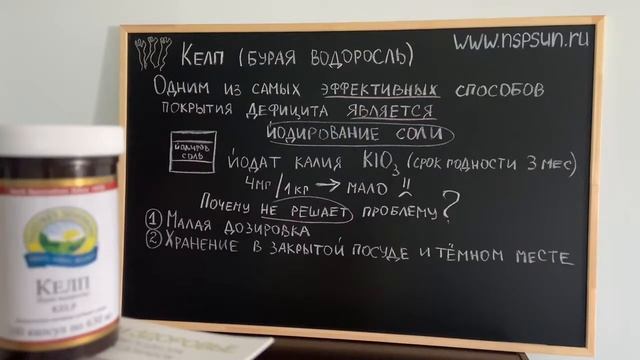 Келп (бурая водоросль)
www.nspsun.ru
Одним из самых эффективных способов
покрытия дефицита является
йодирование соли
йодиров
соль
йодат калия KIO₃ (срок подности 3 мес)
4мг/1кг → мало !!
Почему не решает проблему?
① Малая дозировка
② Хранение в закрытой посуде и тёмном месте
Келп
KELP